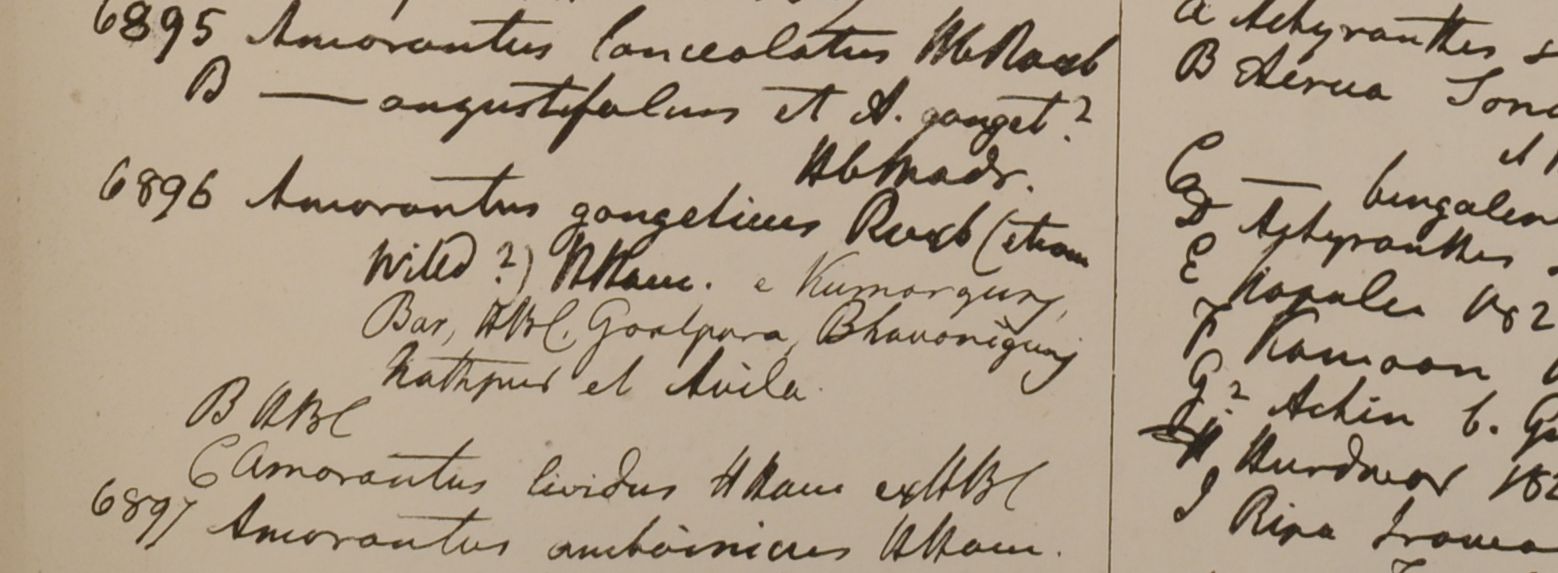 6895 Amarantus lanceolatus Hb Roxb
B — angustifolius et A. ganget?
Hb Madr.
6896 Amarantus gangeticus Roxb (etiam
Willd ?) HHam. e Kumargunj,
Bar, HBC, Goalpara, Bhavanigunj
Nathpur et Avila.
B HBC
C Amarantus lividus HHam ex HBC
6897 Amarantus amboinicus HHam.
a Achyranthes
B Aerua
C — bengalen
D Achyranthes
E Napalia 182
F Kamaon
G? Achin b.
H Hurdwar 182
I Ripa